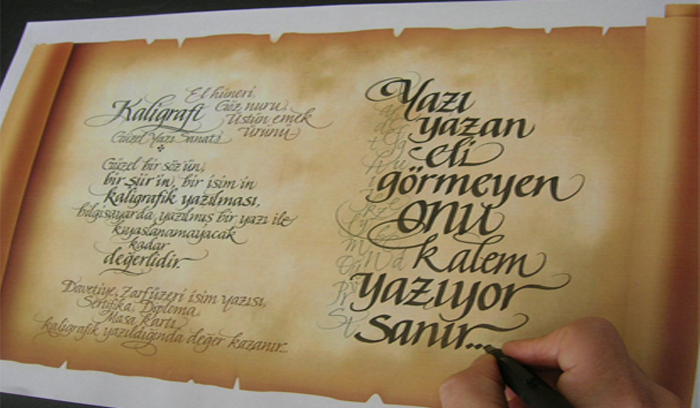 Kaligrafi
Güzel Yazı Sanatı
El hüneri,
Göz nuru,
Üstün emek
ürünü
Güzel bir söz'ün,
bir şiir'in, bir isim'in
kaligrafik yazılması,
bilgisayarda yazılmış bir yazı ile
kıyaslanamayacak
kadar
değerlidir.
Davetiye, Zarf üzeri isim yazısı,
Sertifika, Diploma,
Masa kartı,
kaligrafik yazıldığında değer kazanır...
Yazı
yazan
eli
görmeyen
ONU
kalem
yazıyor
sanır...